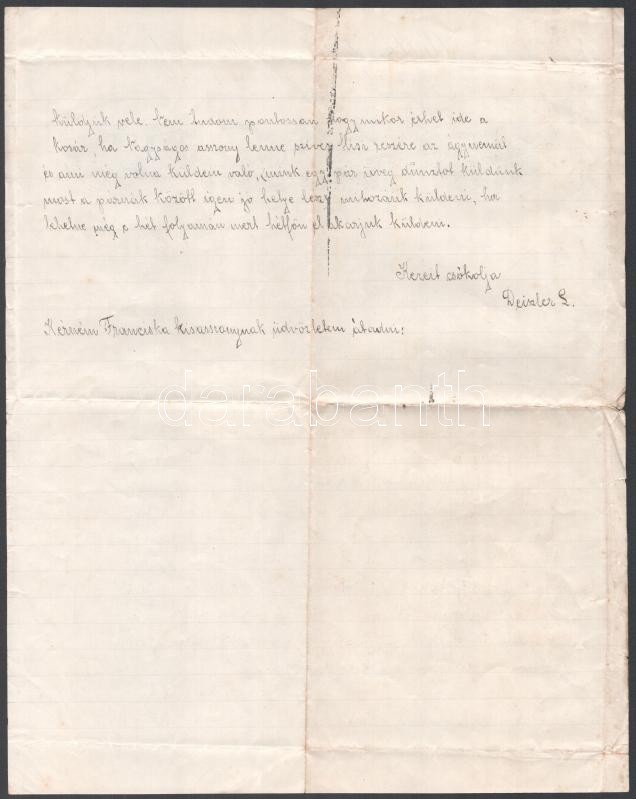 küldjük vele. Nem tudom pontossan hogy mikor érhet ide a
kosár, ha Nagysagos asszony lenne szives részére az ágynemüt
és ami még volna küldeni való, mink egy pár üveg dunztot küldünk
most a párnák között igen jó helye lesz, küldeni, ha
lehetne még e hét folyamán mert hétfőn el akarjuk küldeni.
Kezeit csókolja
Deizler L.
Kérném Franciska kisasszonynak üdvözletem átadni:
darabanth